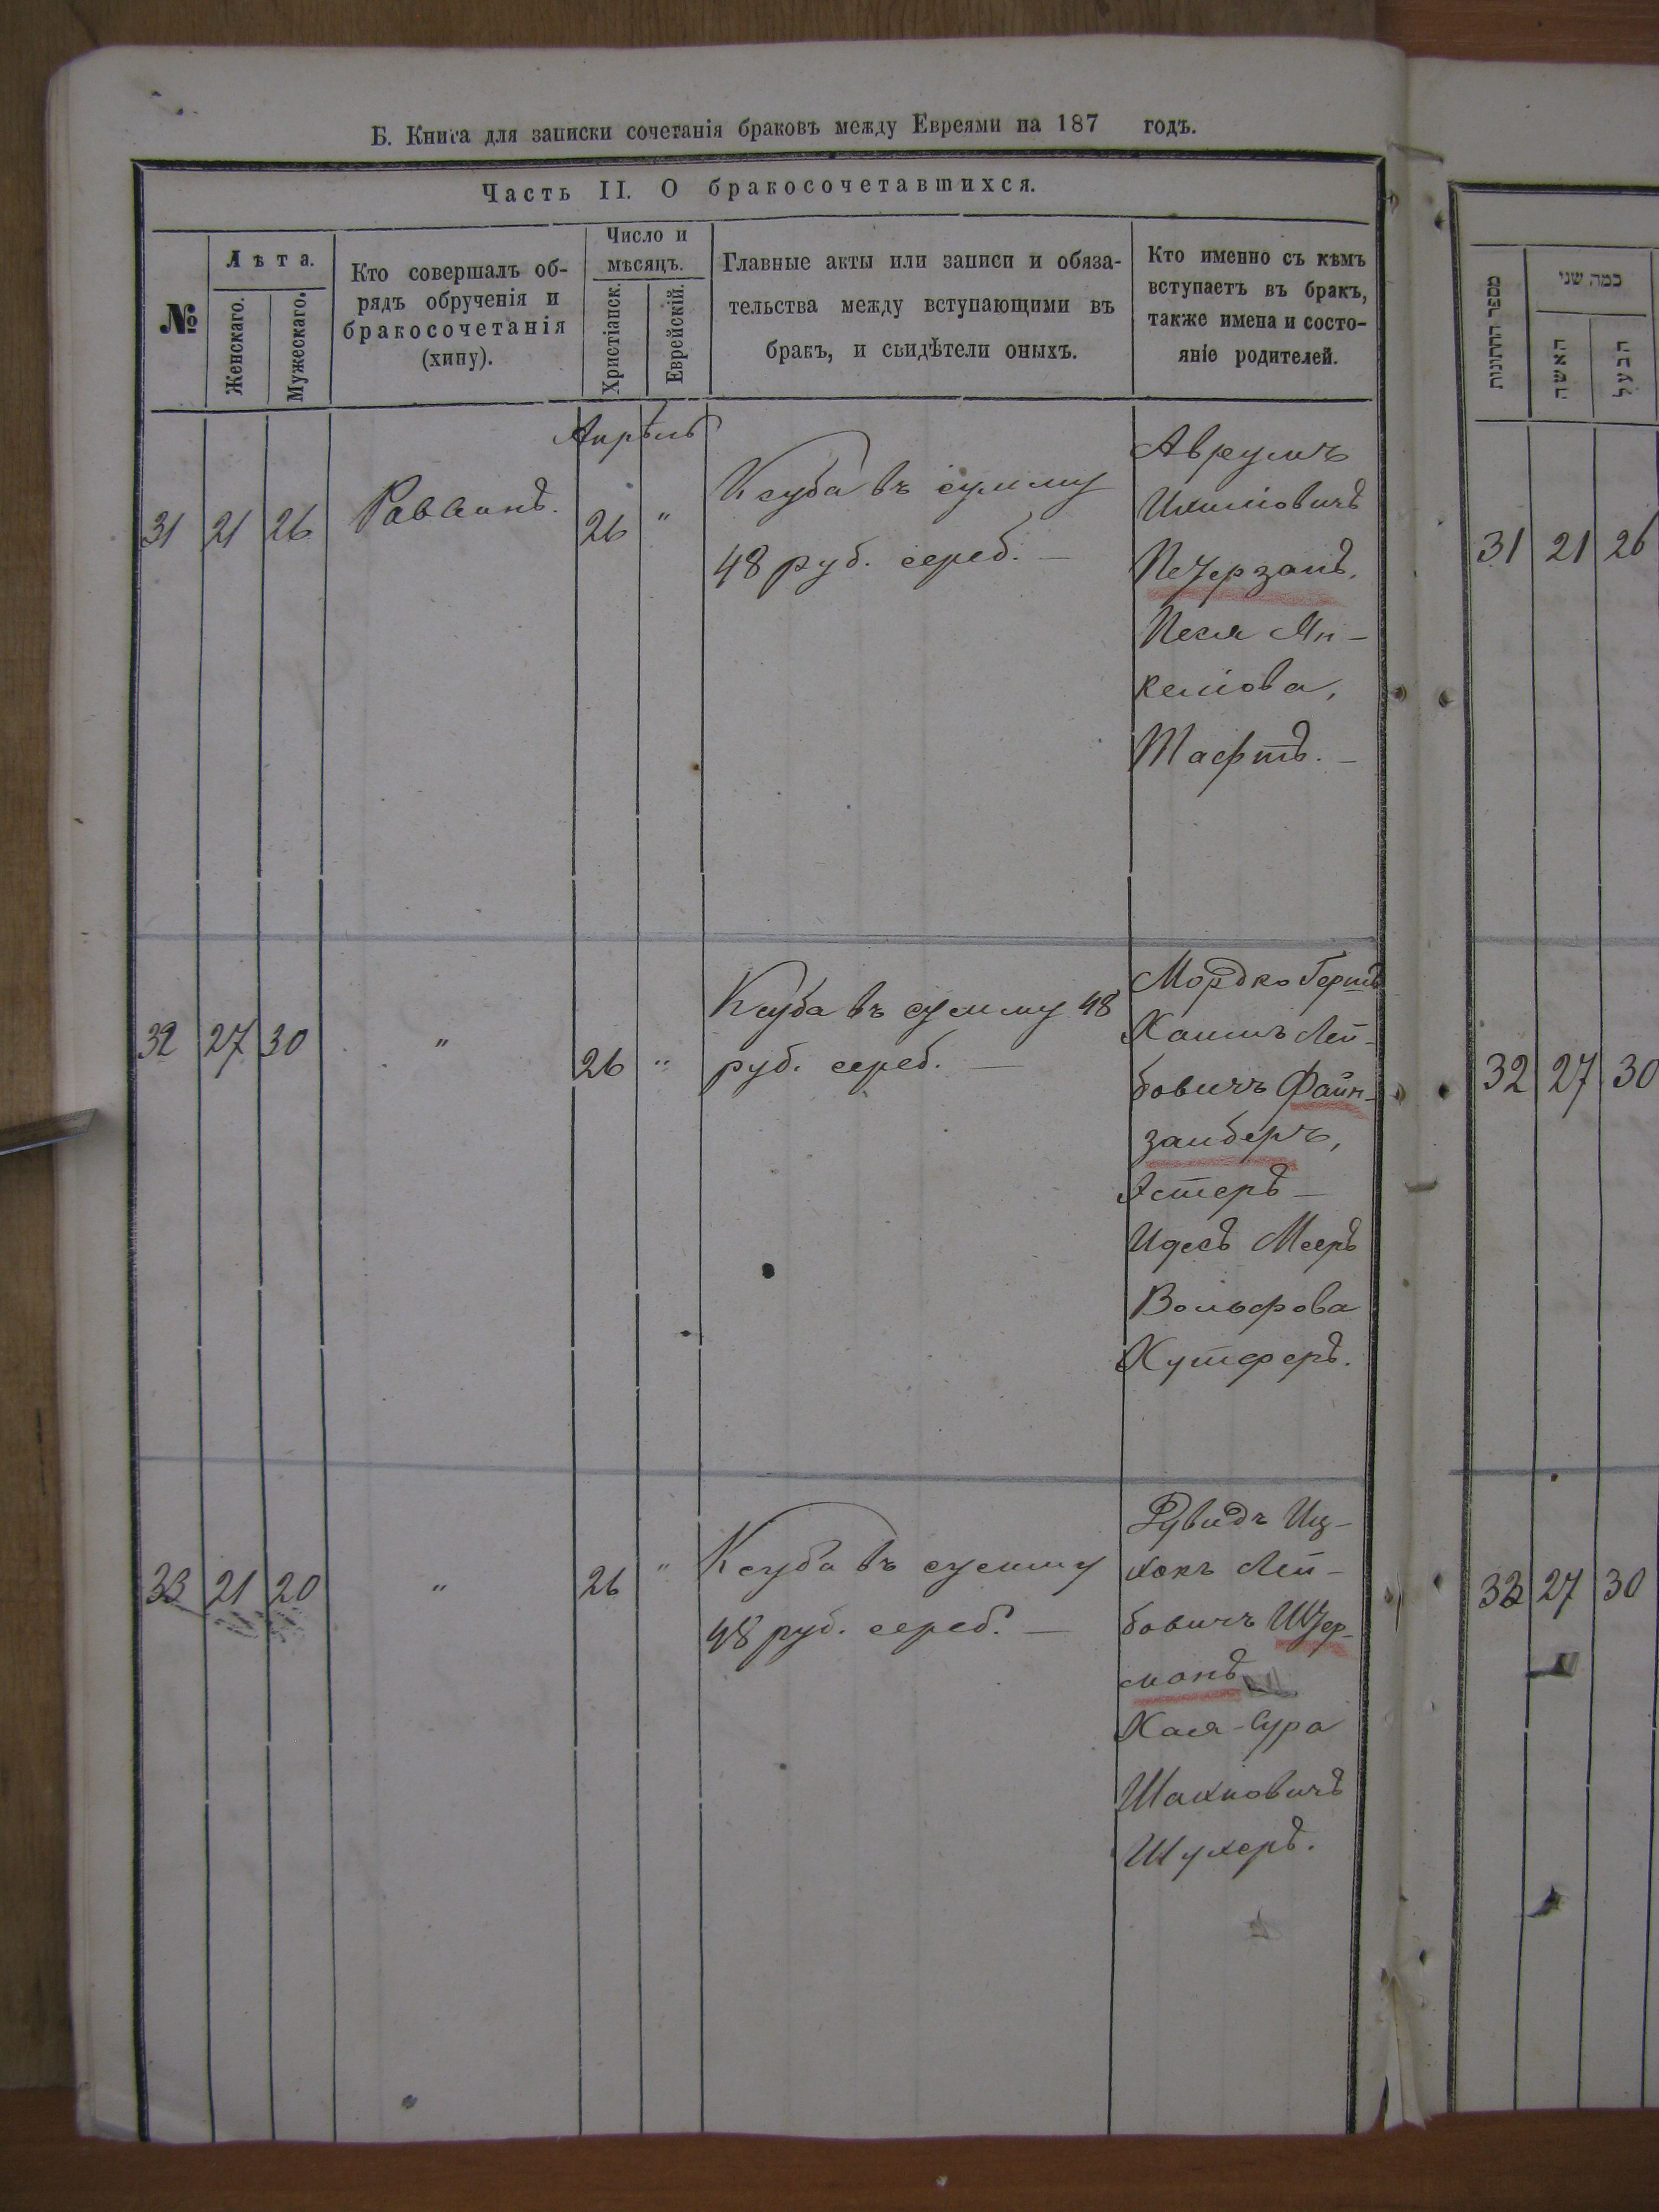 Б. Книга для записки сочетанія браковъ между Евреями на 187 годъ.
Часть II. О бракосочетавшихся.
№
Лѣта.
Женскаго.
Мужескаго.
Кто совершалъ об-
рядъ обрученія и
бракосочетанія
(хипу).
Число и
мѣсяцъ.
Христіанск.
Еврейскій.
Главные акты или записи и обяза-
тельства между вступающими въ
бракъ, и свидѣтели оныхъ.
Кто именно съ кѣмъ
вступаетъ въ бракъ,
также имена и состо-
яніе родителей.
Апрѣль
31 21 26 Раввинъ. 26 "
Ксуба въ сумму
48 руб. сереб. —
Аврумъ
Печерзанъ.
Песя Ян-
келіова,
Тафтъ. —
32 27 30 " 26 "
Ксуба въ сумму 48
руб. сереб. —
Мордко Гершъ
Хаимъ Лей-
бовичъ Файн-
замберъ,
Эстеръ —
Идесъ Мееръ
Вольфова
33 21 20 " 26 "
Ксуба въ сумму
48 руб. сереб. —
Дувидъ Иц-
хокъ Лей-
бовичъ
манъ
Хася-Сура
Шахновичъ
Шухеръ.
מספר החתונות
כמה שני
האשה
הבעל
31 21 26
32 27 30
33 27 30